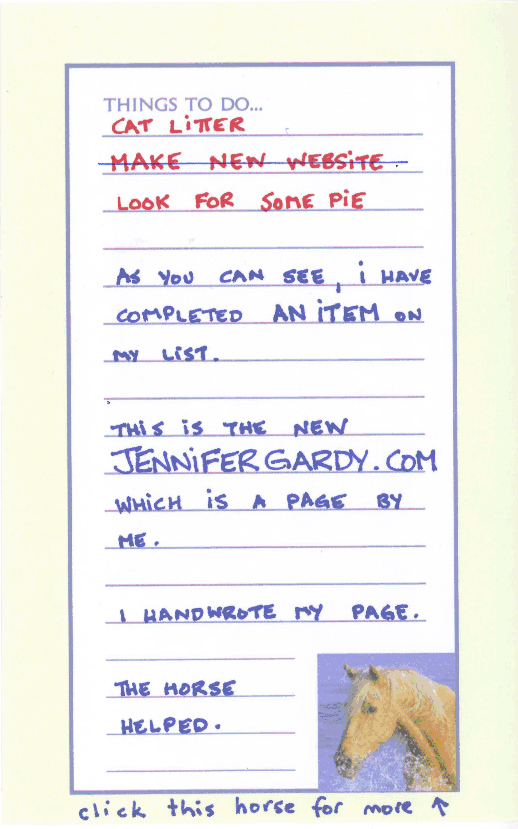 THINGS TO DO...
CAT LiTTER
MAKE NEW WEBSiTE.
LOOK FOR SOME PiE
AS YOU CAN SEE, i HAVE
COMPLETED AN iTEM ON
MY LiST.
THiS iS THE NEW
JENNiFERGARDY.COM
WHiCH iS A PAGE BY
ME.
I HANDWROTE MY PAGE.
THE HORSE
HELPED.
click this horse for more ↑